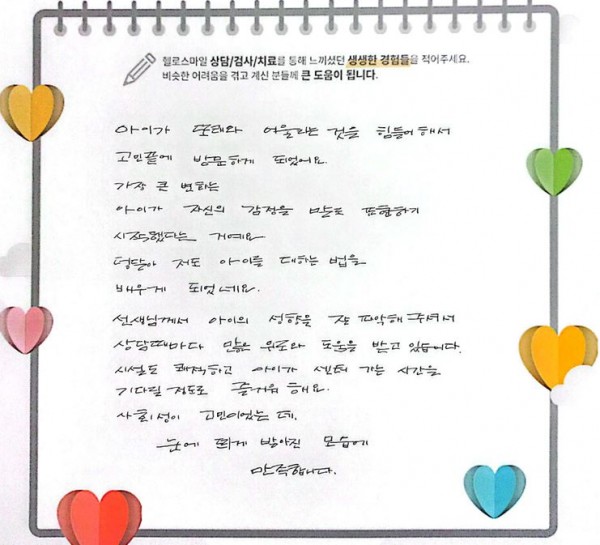 헬로스마일 상담/검사/치료를 통해 느끼셨던 생생한 경험들을 적어주세요.
비슷한 어려움을 겪고 계신 분들께 큰 도움이 됩니다.
아이가 또래와 어울리는 것을 힘들어해서
고민끝에 방문하게 되었어요.
가장 큰 변화는
아이가 자신의 감정을 말로 표현하기
시작했다는 거예요
덩달아 저도 아이를 대하는 법을
배우게 되었네요.
선생님께서 아이의 성향을 잘 파악해 주셔서
상담때마다 많은 위로와 도움을 받고 있습니다.
시설도 쾌적하고 아이가 센터 가는 시간을
기다릴 정도로 즐거워 해요.
사회성이 고민이었는데.
눈에 띄게 밝아진 모습에
만족합니다.